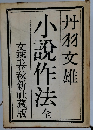 丹羽文雄
小説作法 全
文藝春秋新社蔵版